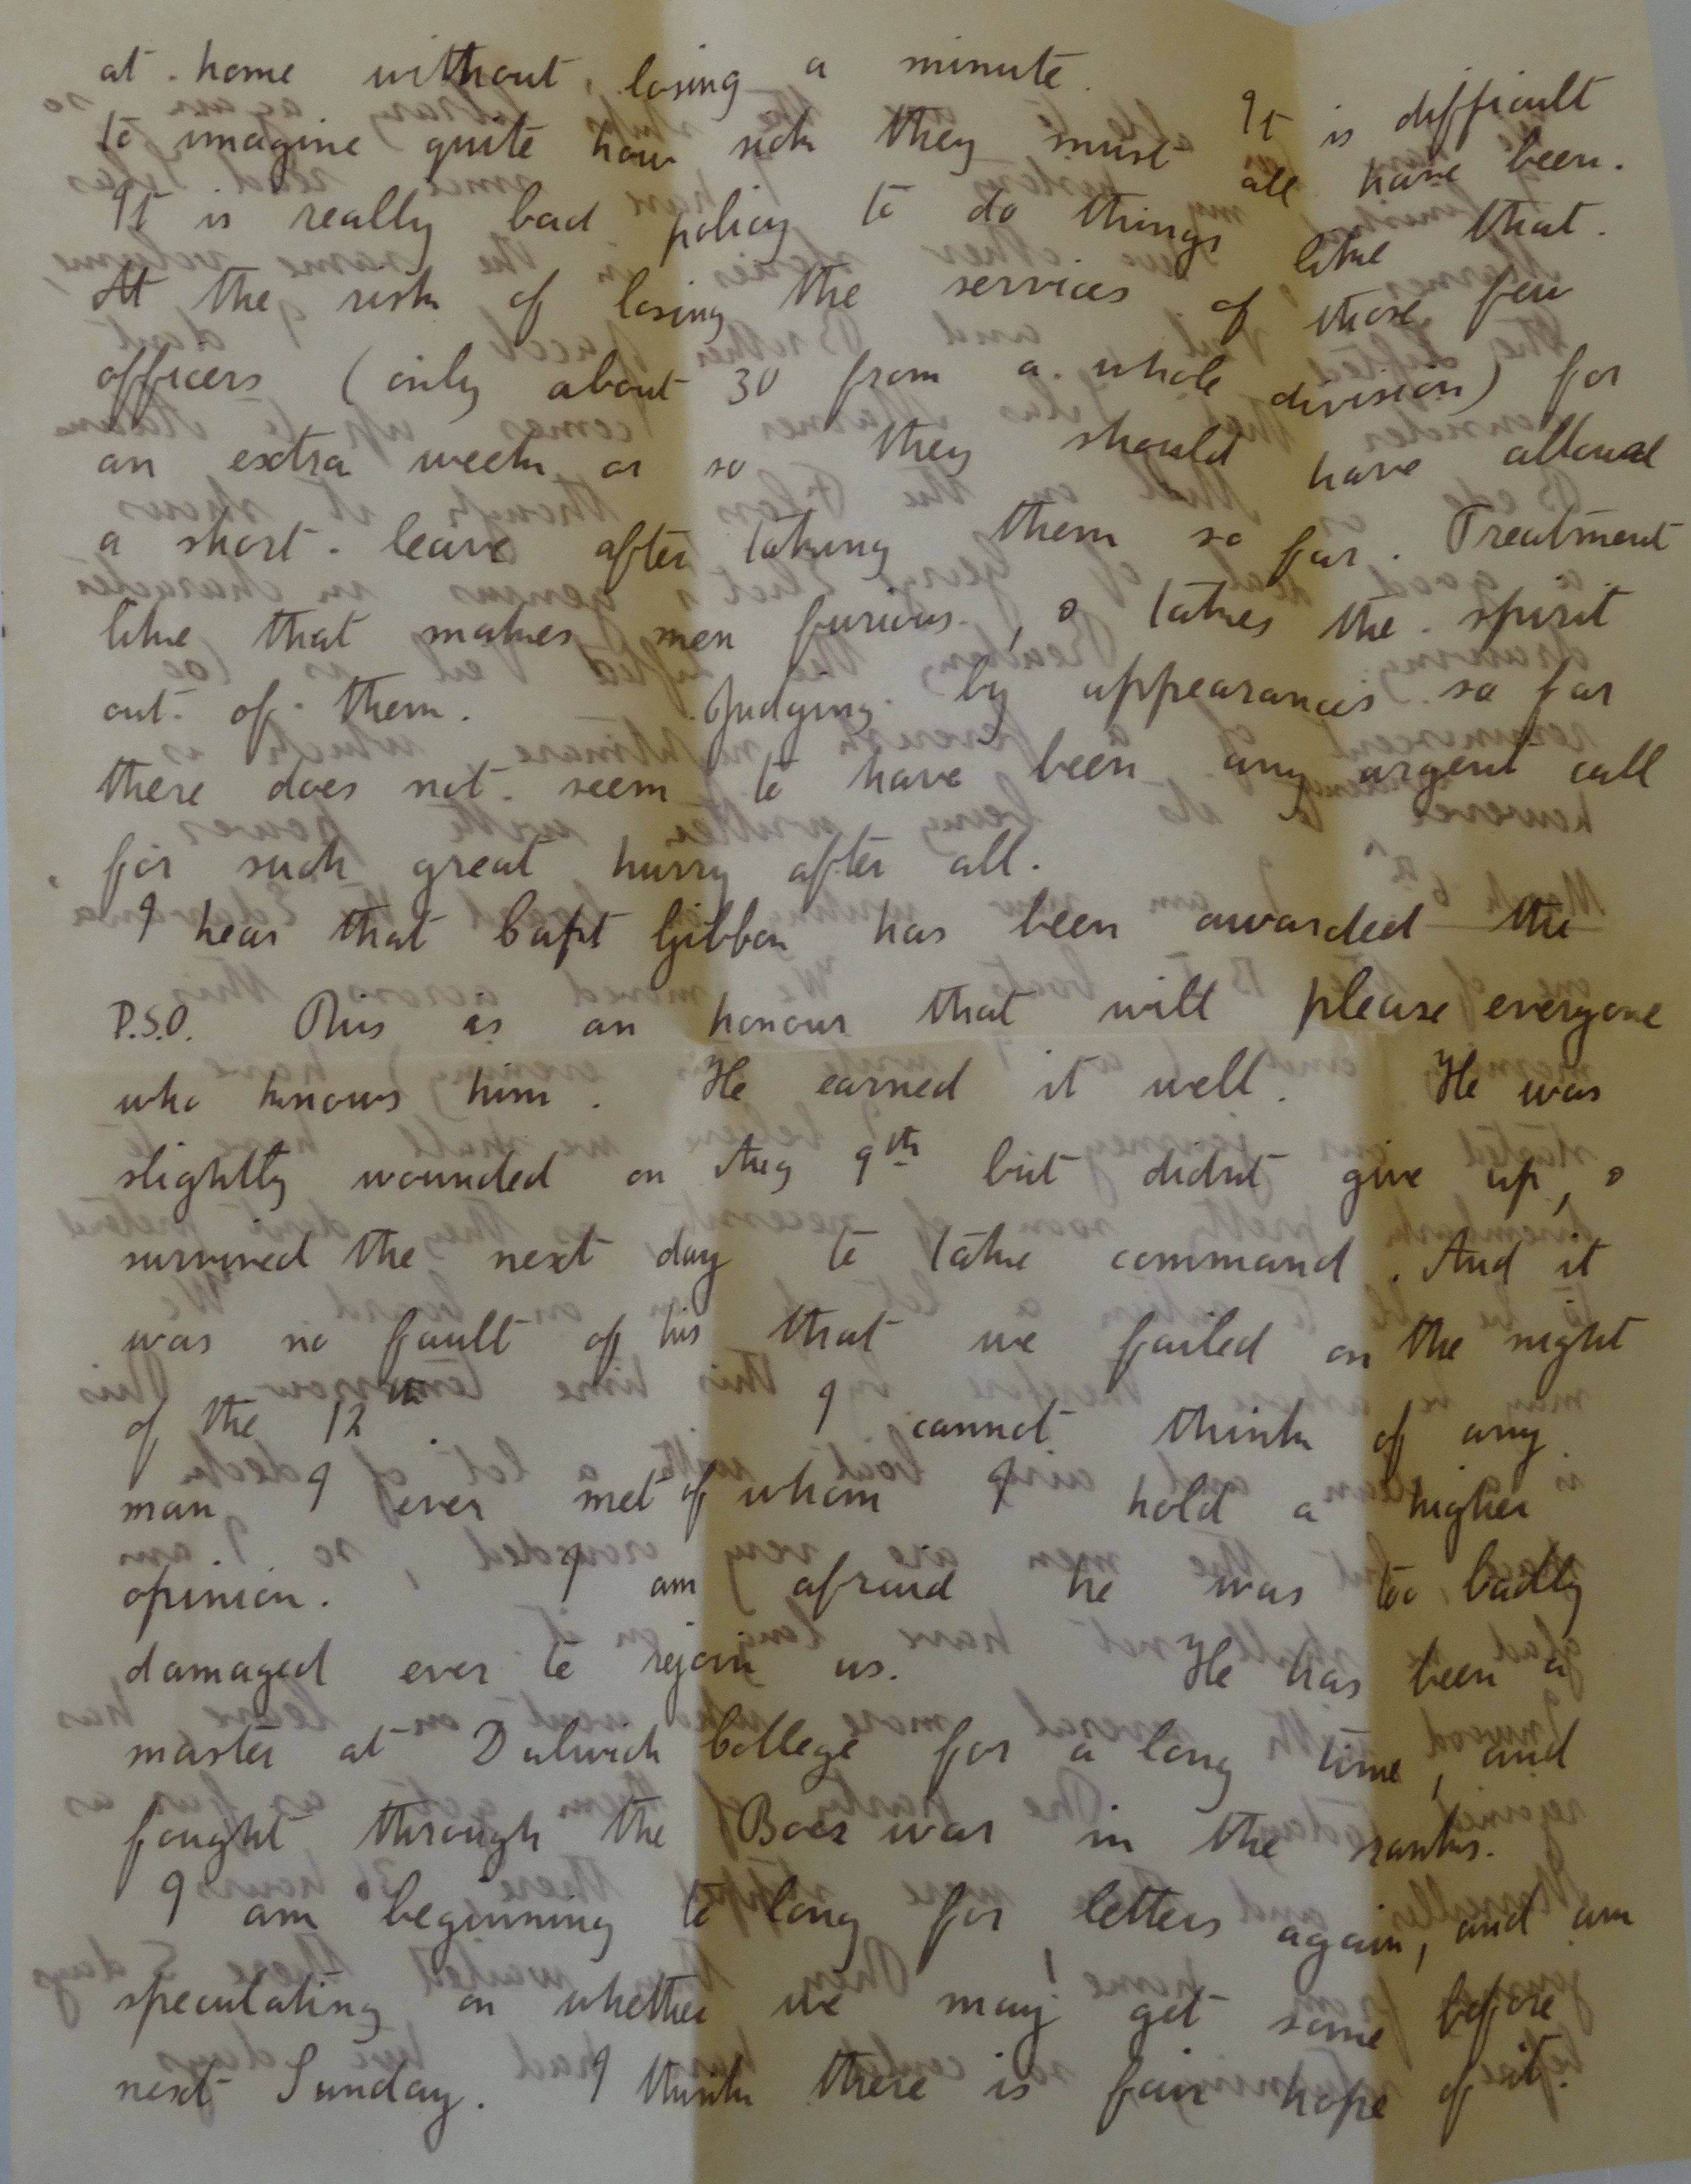 at home without losing a minute. It is difficult
to imagine quite how sick they must all have been.
It is really bad policy to do things like that.
At the risk of losing the services of those few
officers (only about 30 from a whole division) for
an extra week or so they should have allowed
a short leave after taking them so far. Treatment
like that makes men furious, & takes the spirit
out of them. Judging by appearances so far
there does not seem to have been any urgent call
for such great hurry after all.
I hear that Capt Gibbon has been awarded the
D.S.O. This is an honour that will please everyone
who knows him. He earned it well. He was
slightly wounded on Aug 9th but didnt give up, &
survived the next day to take command. And it
was no fault of his that we failed on the night
of the 12th. I cannot think of any
man I ever met of whom I hold a higher
opinion. I am afraid he was too badly
damaged ever to rejoin us. He has been a
master at Dulwich College for a long time, and
fought through the Boer war in the ranks.
I am beginning to long for letters again, and am
speculating on whether we may get some before
next Sunday. I think there is fair hope of it.